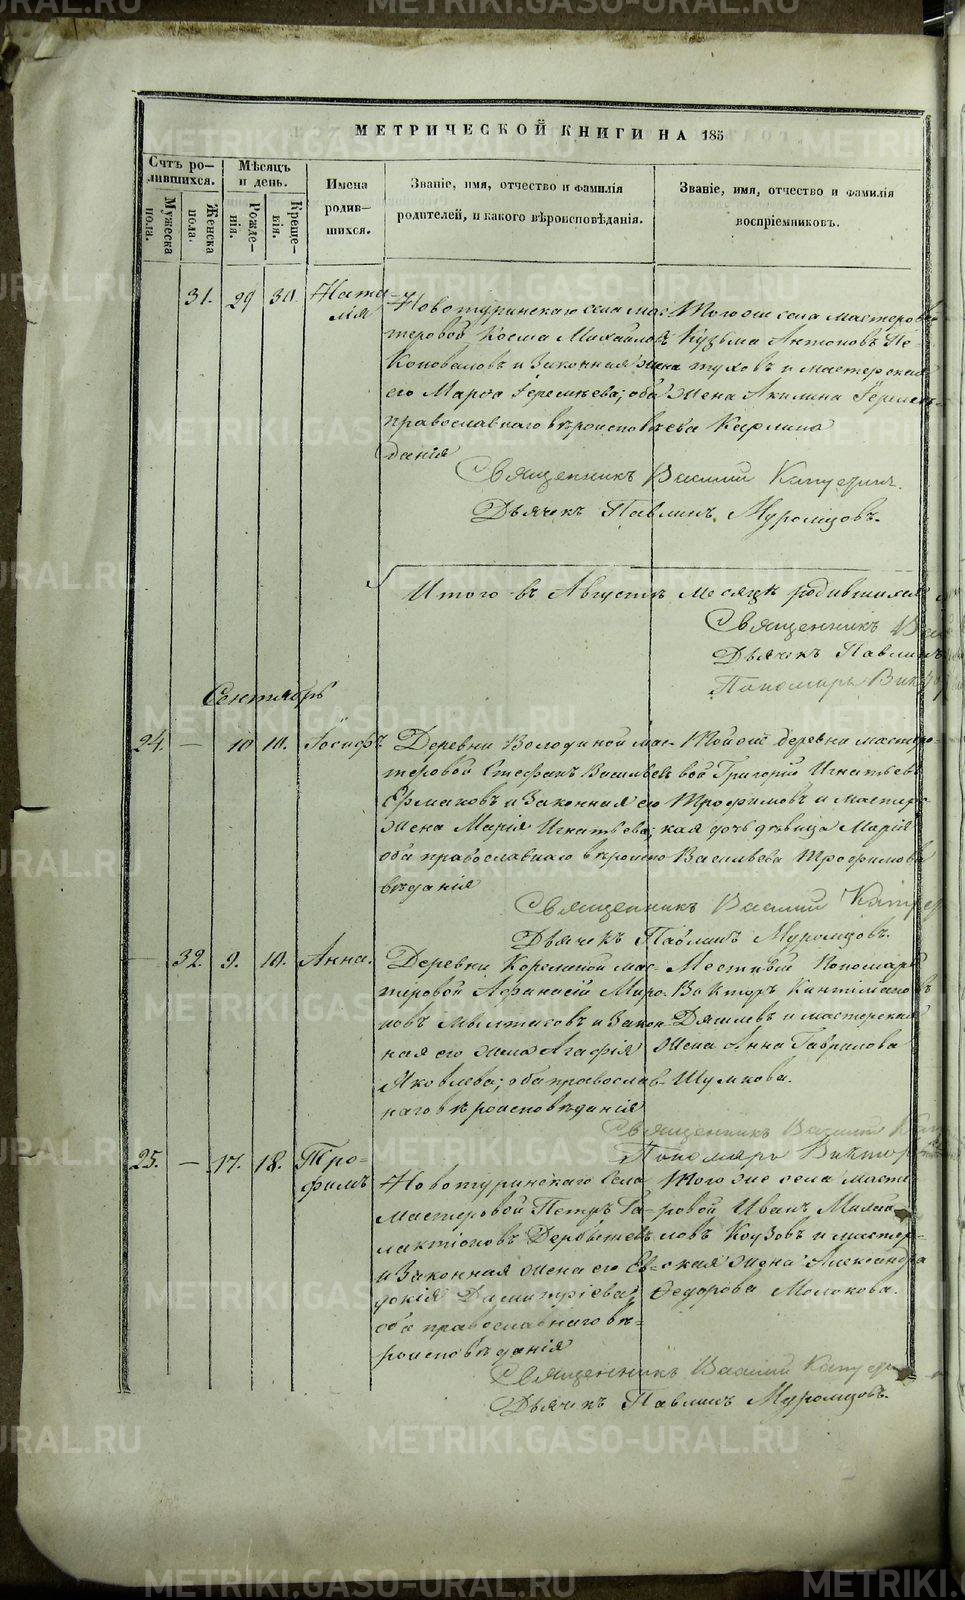 METRIKI.GASO-URAL.RU
МЕТРИЧЕСКОЙ КНИГИ НА 185
Счтъ ро-
дившихся.
Мѣсяцъ
и день.
Мужеска
пола.
Женска
пола.
Рожде-
нія.
Креще-
нія.
Имена
родив-
шихся.
Званіе, имя, отчество и фамилія
родителей, и какого вѣроисповѣданія.
Званіе, имя, отчество и фамилія
воспріемниковъ.
31. 29 30. Ната-
лія
Новотуринскаго села мас-
теровой Косма Михайловъ
Коноваловъ и законная жена
его Марѳа Еремѣева; оба
православнаго вѣроиспов
данія
Того же села мастеров
Кузьма Антоновъ Пе-
туховъ и мастерская
жена Акилина Еремѣ-
ева
Священникъ Василий
Дьячекъ Павлинъ Муромцовъ.
Итого въ Августѣ месяцѣ родившихся
Священникъ
Дьячекъ Павлинъ
Пономарь Викт
Сентябрь
24. — 10 10. Іосифъ
Деревни Володиной мас-
теровой Стефанъ Васильевъ
Ермаковъ и законная его
жена Марія Игнатьева;
оба православнаго вѣроиспо
вѣданія
Той же деревни мастеро-
вой Григорій Игнатьевъ
Трофимовъ и мастерс
кая дочь дѣвица Марія
Васильева Трофимова
Священникъ Василий
Дьячекъ Павлинъ Муромцовъ.
32. 9. 10. Анна.
Деревни Корелиной мас-
теровой Афанасій Миро-
новъ Мылтасовъ и закон-
ная его жена Агафія
Яковлева; оба православ-
наго вѣроисповѣданія
Местный Пономарь
Викторъ
и мастерская
жена Анна Гаврилова
Шумкова.
Священникъ Василий
Пономарь Виктор
25. — 17. 18. Тро-
фимъ
Новотуринскаго села
мастеровой Петръ Га-
лактіоновъ Дерябинъ
и законная жена его Ев-
докія Димитріева;
оба православнаго вѣ-
роисповѣданія
Того же села масте
ровой Иванъ Михай
ловъ Козовъ и мастер-
ская жена Александра
Федорова Молокова.
Священникъ Василий
Дьячекъ Павлинъ Муромцовъ.